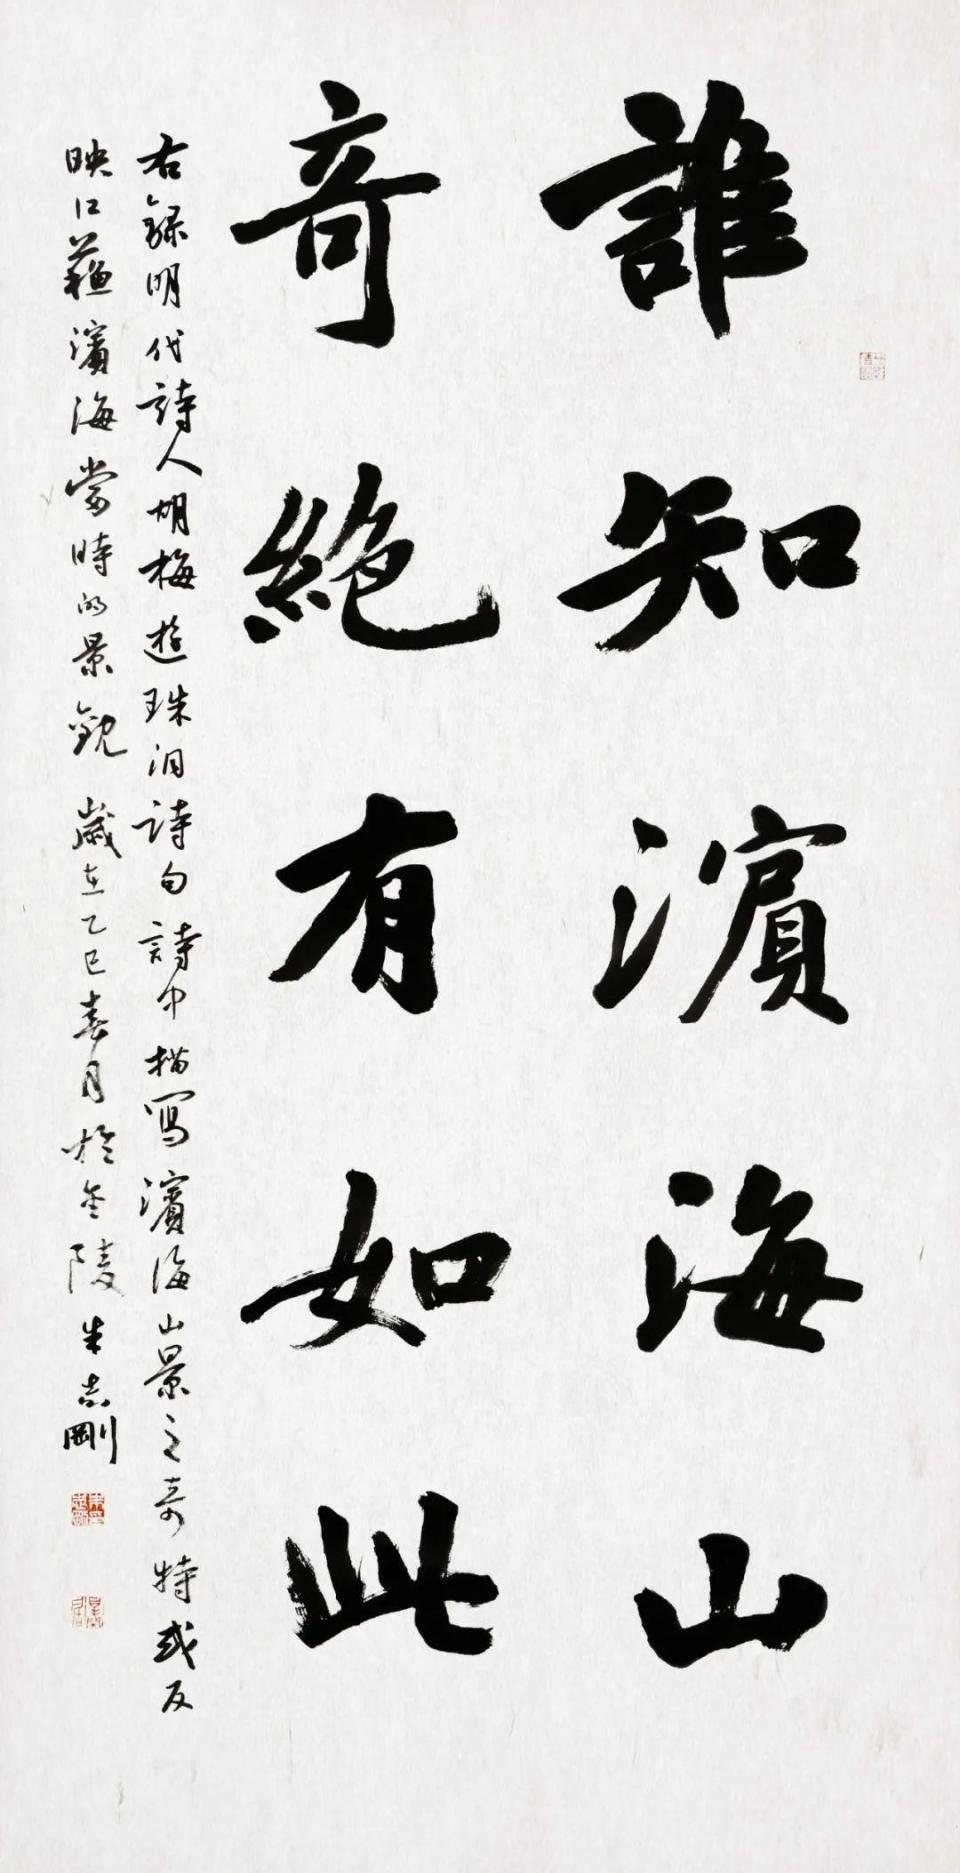 誰知濱海山
奇絶有如此
右録明代詩人胡梅遊珠泪詩句詩中描寫濱海山景之奇特或反
映江蘇濱海當時的景觀 歲在乙巳春月於金陵朱志剛